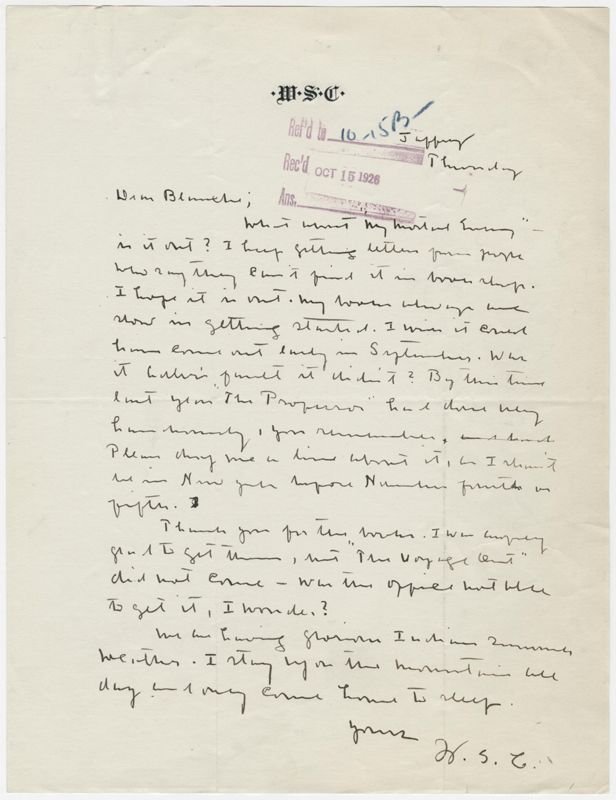 ·W·S·C·
Ref'd to 10-15 B
Jaffrey
Rec'd OCT 15 1926
Thursday
Ans.
Dear Blanche;
What about "My Mortal Enemy" –
is it out? I keep getting letters from people
who say they can't find it in book shops.
I hope it is out. My books always are
slow in getting started. I wish it could
have come out early in September. Was
it fault it didn't? By this time
last year "The Professor" had done very
handsomely, you remember,
Please drop me a line about it, as I shan't
be in New York before November fourth or
fifth.
Thank you for the books. I was awfully
glad to get them, but "The Voyage Out"
did not come – was the office not able
to get it, I wonder?
We are having glorious Indian summer
weather. I stay up on the mountain all
day and only come home to sleep.
Yours
W. S. C.